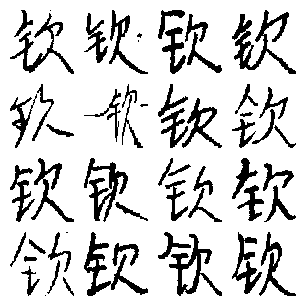 钦钦钦钦
钦钦钦钦
钦钦钦钦
钦钦钦钦